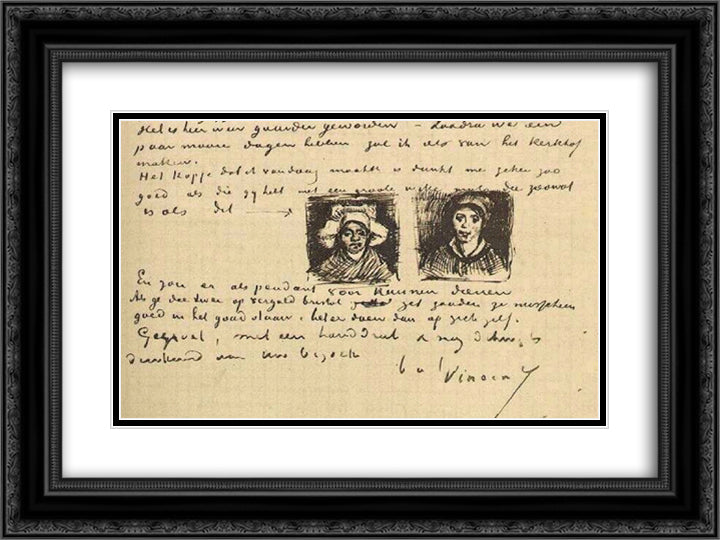 Het is hier weer guurder geworden – Zoodra we een
paar mooie dagen hebben zal ik iets van het kerkhof
maken.
Het kopje dat ik vandaag maakte is dunkt me zeker zoo
goed als die gij hebt met een groote witte muts die zoowat
is als dit
En zou er als pendant voor kunnen dienen
Als ge die twee op verguld bristol zet zouden ze misschien
goed in het goud staan, beter doen dan op zich zelf.
Gegroet, met een handdruk & nog dank
van Uw bezoek
b à t
Vincent